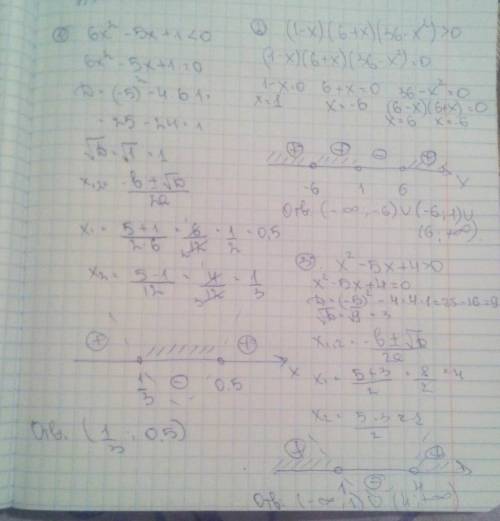 ① 6x² - 5x + 1 < 0
6x² - 5x + 1 = 0
D = (-5)² - 4·6·1 =
= 25 - 24 = 1
√D = √1 = 1
x₁,₂ = -b ± √D / 2a
x₁ = 5+1 / 2·6 = 6/12 = 1/2 = 0,5
x₂ = 5-1 / 12 = 4/12 = 1/3
+ - + x
1/3 0.5
Отв. (1/3; 0,5)
② (1-x)(6+x)(36-x²)>0
(1-x)(6+x)(36-x²)=0
1-x=0 6+x=0 36-x²=0
x=1 x=-6 (6-x)(6+x)=0
x=6 x=-6
+ + - + x
-6 1 6
Отв. (-∞,-6)∪(-6,1)∪
(6,+∞).
③ x² - 5x + 4 > 0
x² - 5x + 4 = 0
D = (-5)² - 4·4·1 = 25 - 16 = 9
√D = √9 = 3
x₁,₂ = -b ± √D / 2a
x₁ = 5+3 / 2 = 8/2 = 4
x₂ = 5-3 / 2 = 1
+ - + x
1 4
Отв. (-∞, 1) ∪ (4, +∞)